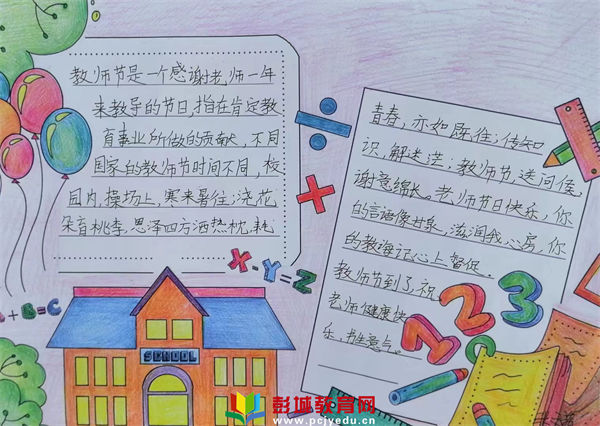 教师节是一个感谢老师一年
来教导的节日,指在肯定教
育事业所做的贡献,不同
国家的教师节时间不同,校
园内,操场上,寒来暑往;浇花
朵育桃李,恩泽四方洒热枕,耗
青春,亦如既往;传知
识,解迷茫;教师节,送问候,
谢意绵长。老师节日快乐,你
的言语像甘泉,滋润我心房,你
的教诲记心上 督促。
教师节到了,祝
老师健康快
乐,书生意气。
X-Y=Z
A+B=C
1 2 3
SCHOOL
彭城教育网
www.pcjyedu.cn